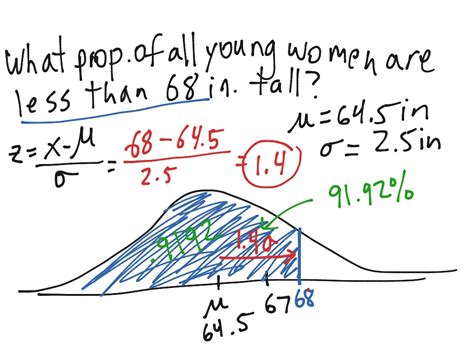 What prop. of all young women are
less than 68 in. tall?
μ = 64.5 in
σ = 2.5 in
z = x-μ/σ = 68-64.5/2.5 = 1.4
91.92%
.9192
1.4σ
μ 67 68
64.5